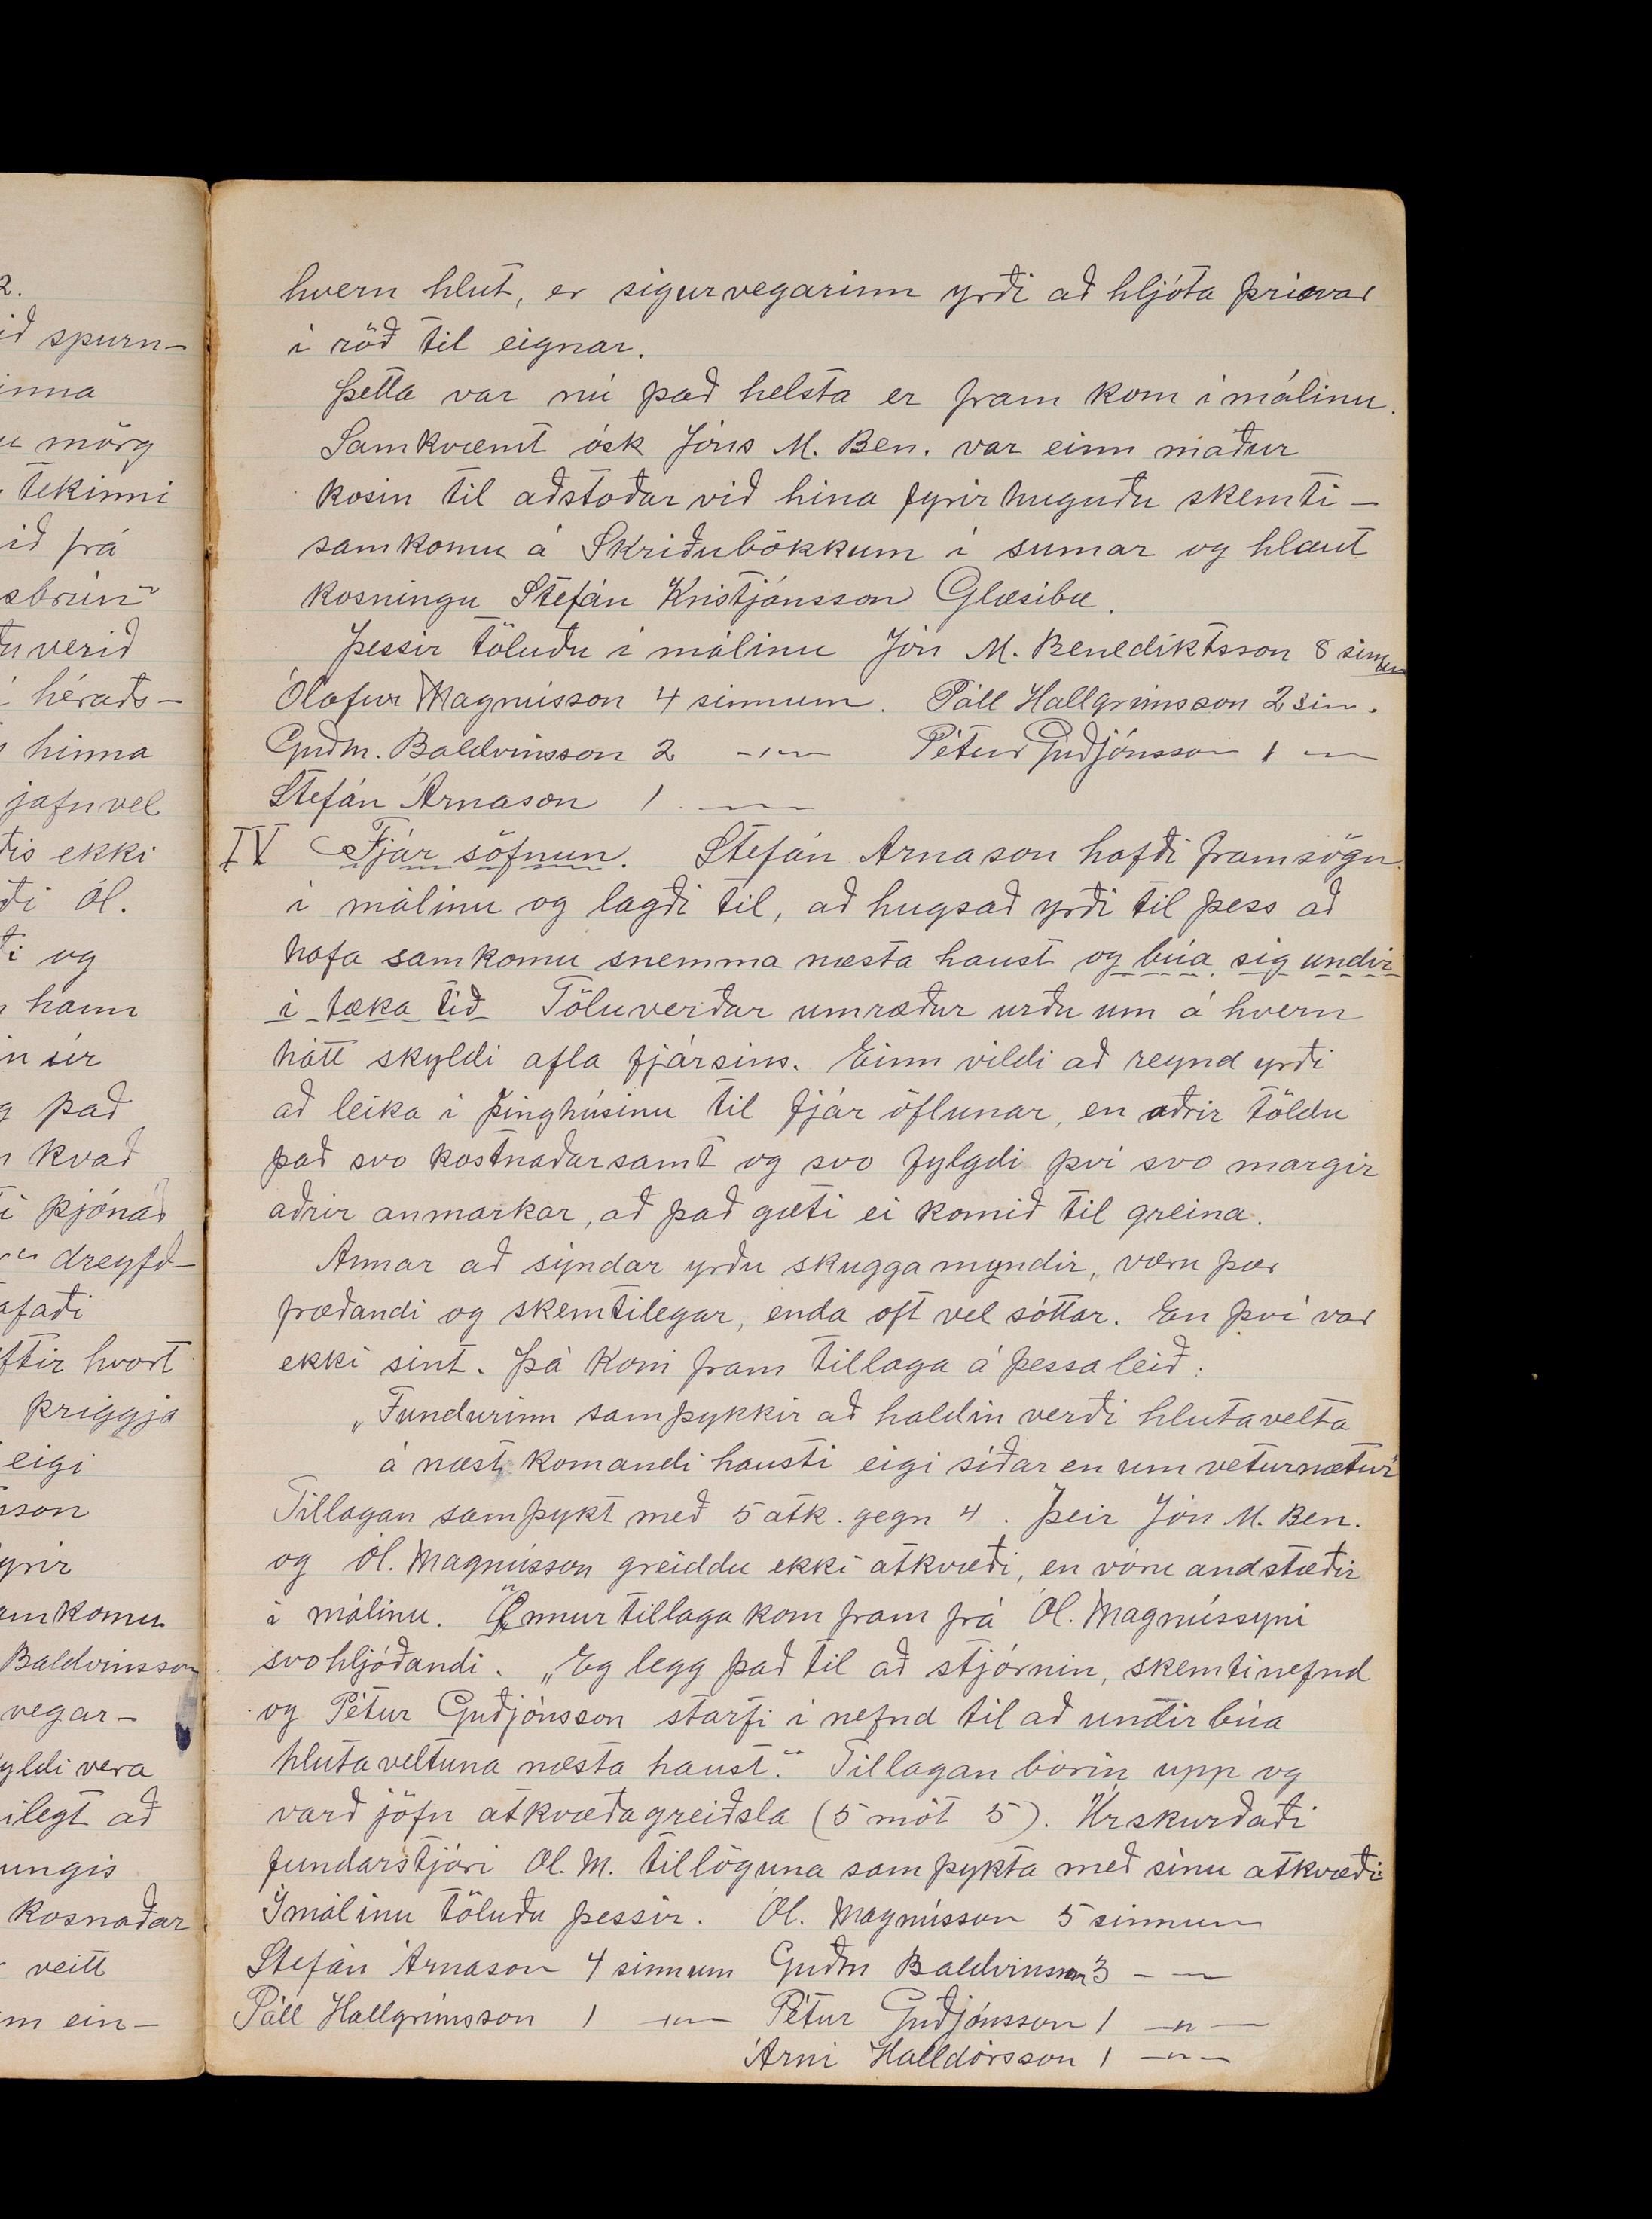 2.
ið spurn-
inna
u mörg
tekinni
ið frá
sbrún"
ðu verið
í héraðs-
hinna
jafnvel
ðis ekki
ði Ól.
ði og
hann
in sér
g það
kvað
ti þjónað
" dreyfð-
afaði
ftir hvort
þriggja
eigi
sson
yrir
amkomu
Baldvinsson
vegar-
yldi vera
ilegt að
ungis
kosnaðar
veitt
m ein-
hvern hlut, er sigurvegarinn yrði að hljóta þrisvar
í röð til eignar.
Þetta var nú það helsta er fram kom í málinu.
Samkvæmt ósk Jóns M. Ben. var einn maður
kosin til aðstoðar við hina fyrirhuguðu skemti-
samkomu á Skriðubökkum í sumar og hlaut
kosningu Stefán Kristjánsson Glæsibæ.
Þessir töluðu í málinu Jón M. Benediktsson 8 sinnum
Ólafur Magnússon 4 sinnum. Páll Hallgrímsson 2 sin.
Guðm. Baldvinsson 2 -"- Pétur Guðjónsson 1 -
Stefán Árnason 1 -
IV Fjár söfnun. Stefán Árnason hafði framsögu
í málinu og lagði til, að hugsað yrði til þess að
hafa samkomu snemma næsta haust og búa sig undir
í tæka tíð Töluverðar umræður urðu um á hvern
hátt skyldi afla fjársins. Einn vildi að reynd yrði
að leika í þinghúsinu til fjár öflunar, en aðrir töldu
það svo kostnaðarsamt og svo fylgdi því svo margir
aðrir anmarkar, að það gæti ei komið til greina.
Annar að sýndar yrðu skugga myndir, væru þær
fræðandi og skemtilegar, enda oft vel sóttar. En því var
ekki sint. Þá kom fram tillaga á þessa leið:
„Fundurinn samþykkir að haldin verði hlutavelta
á næst komandi hausti eigi síðar en um veturnætur"
Tillagan samþykt með 5 atk. gegn 4. Þeir Jón M. Ben.
og Ól. Magnússon greiddu ekki atkvæði, en vóru andstæðir
í málinu. Önnur tillaga kom fram frá Ól. Magnússyni
svohljóðandi. „Eg legg það til að stjórnin, skemtinefnd
og Pétur Guðjónsson starfi í nefnd til að undirbúa
hlutaveltuna næsta haust." Tillagan borin upp og
varð jöfn atkvæðagreiðsla (5 mót 5). Úrskurðaði
fundarstjóri Ól. M. tillöguna samþykta með sínu atkvæði
Í málinu töluðu þessir. Ól. Magnússon 5 sinnum
Stefán Árnason 4 sinnum Guðm Baldvinsson 3 - -
Páll Hallgrímsson 1 -"- Pétur Guðjónsson 1 -"-
Árni Halldórsson 1 -"-